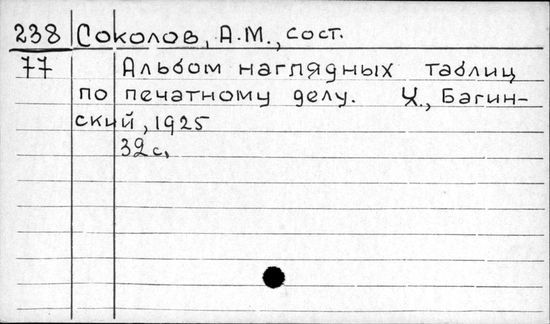 238 Соколов, А.М., сост.
77 Альбом наглядных таблиц
по печатному делу. Х., Багин-
ский, 1925
32 с.